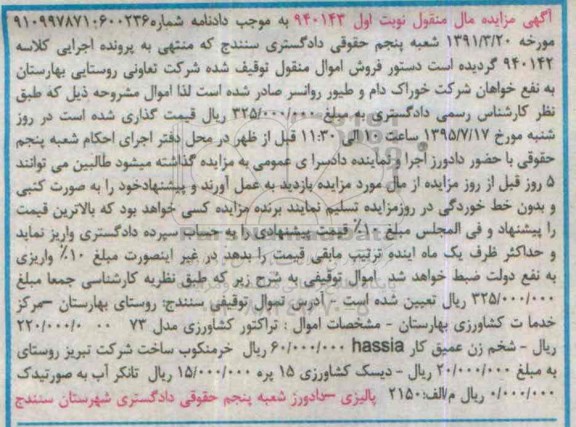 آگهی مزایده مال منقول نوبت اول ۹۴۰۱۴۳ به موجب دادنامه شماره ۹۱۰۹۹۷۸۷۱۰۶۰۰۲۳۶
مورخه ۱۳۹۱/۳/۲۰ شعبه پنجم حقوقی دادگستری سنندج که منتهی به پرونده اجرایی کلاسه
۹۴۰۱۴۲ گردیده است دستور فروش اموال منقول توقیف شده شرکت تعاونی روستایی بهارستان
به نفع خواهان شرکت خوراک دام و طیور روانسر صادر شده است لذا اموال مشروحه ذیل که طبق
نظر کارشناس رسمی دادگستری به مبلغ ۳۲۵/۰۰۰/۰۰۰ ریال قیمت گذاری شده است در روز
شنبه مورخ ۱۳۹۵/۷/۱۷ ساعت ۱۰ الی ۱۱:۳۰ قبل از ظهر در محل دفتر اجرای احکام شعبه پنجم
حقوقی با حضور دادورز اجرا و نماینده دادسرا ی عمومی به مزایده گذاشته میشود طالبین می توانند
۵ روز قبل از روز مزایده از مال مورد مزایده بازدید به عمل آورند و پیشنهادخود را به صورت کتبی
و بدون خط خوردگی در روزمزایده تسلیم نمایند برنده مزایده کسی خواهد بود که بالاترین قیمت
را پیشنهاد و فی المجلس مبلغ ۱۰٪ قیمت پیشنهادی را به حساب سپرده دادگستری واریز نماید
و حداکثر ظرف یک ماه اینده ترتیب مابقی قیمت را بدهد در غیر اینصورت مبلغ ۱۰٪ واریزی
به نفع دولت ضبط خواهد شد اموال توقیفی به شرح زیر که طبق نظریه کارشناسی جمعا مبلغ
۳۲۵/۰۰۰/۰۰۰ ریال تعیین شده است - آدرس اموال توقیفی سنندج: روستای بهارستان –مرکز
خدما ت کشاورزی بهارستان - مشخصات اموال : تراکتور کشاورزی مدل ۷۳ ۲۲۰/۰۰۰/۰۰۰
ریال - شخم زن عمیق کار hassia ۶۰/۰۰۰/۰۰۰ ریال خرمنکوب ساخت شرکت تبریز روستای
به مبلغ ۲۰/۰۰۰/۰۰۰ ریال - دیسک کشاورزی ۱۵ پره ۱۵/۰۰۰/۰۰۰ ریال تانکر آب به صورتیدک
۰/۰۰۰/۰۰۰ ریال م/الف: ۲۱۵۰ پالیزی –دادورز شعبه پنجم حقوقی دادگستری شهرستان سنندج